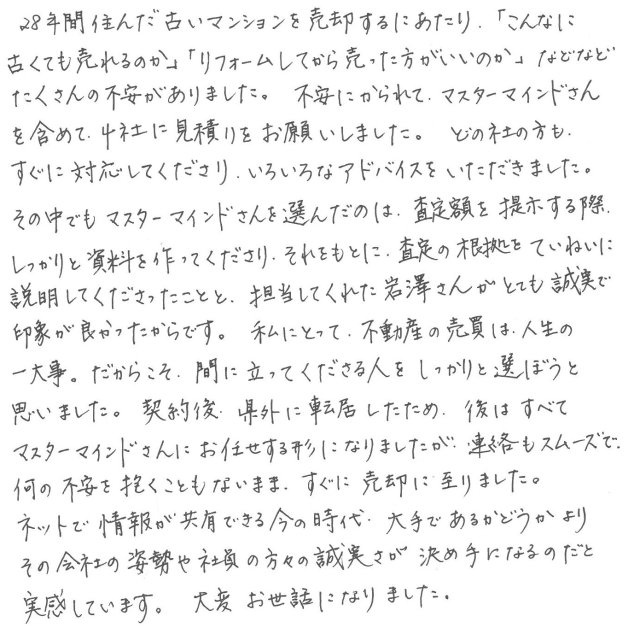 28年間住んだ古いマンションを売却するにあたり、「こんなに
古くても売れるのか」「リフォームしてから売った方がいいのか」などなど
たくさんの不安がありました。 不安にかられて、マスターマインドさん
を含めて、4社に見積りをお願いしました。 どの社の方も、
すぐに対応してくださり、いろいろなアドバイスをいただきました。
その中でもマスターマインドさんを選んだのは、査定額を提示する際、
しっかりと資料を作ってくださり、それをもとに、査定の根拠をていねいに
説明してくださったことと、担当してくれた岩澤さんがとても誠実で
印象が良かったからです。 私にとって、不動産の売買は、人生の
一大事。だからこそ、間に立ってくださる人をしっかりと選ぼうと
思いました。 契約後、県外に転居したため、後はすべて
マスターマインドさんにお任せする形になりましたが、連絡もスムーズで、
何の不安を抱くこともないまま、すぐに売却に至りました。
ネットで情報が共有できる今の時代、大手であるかどうかより
その会社の姿勢や社員の方々の誠実さが決め手になるのだと
実感しています。 大変お世話になりました。